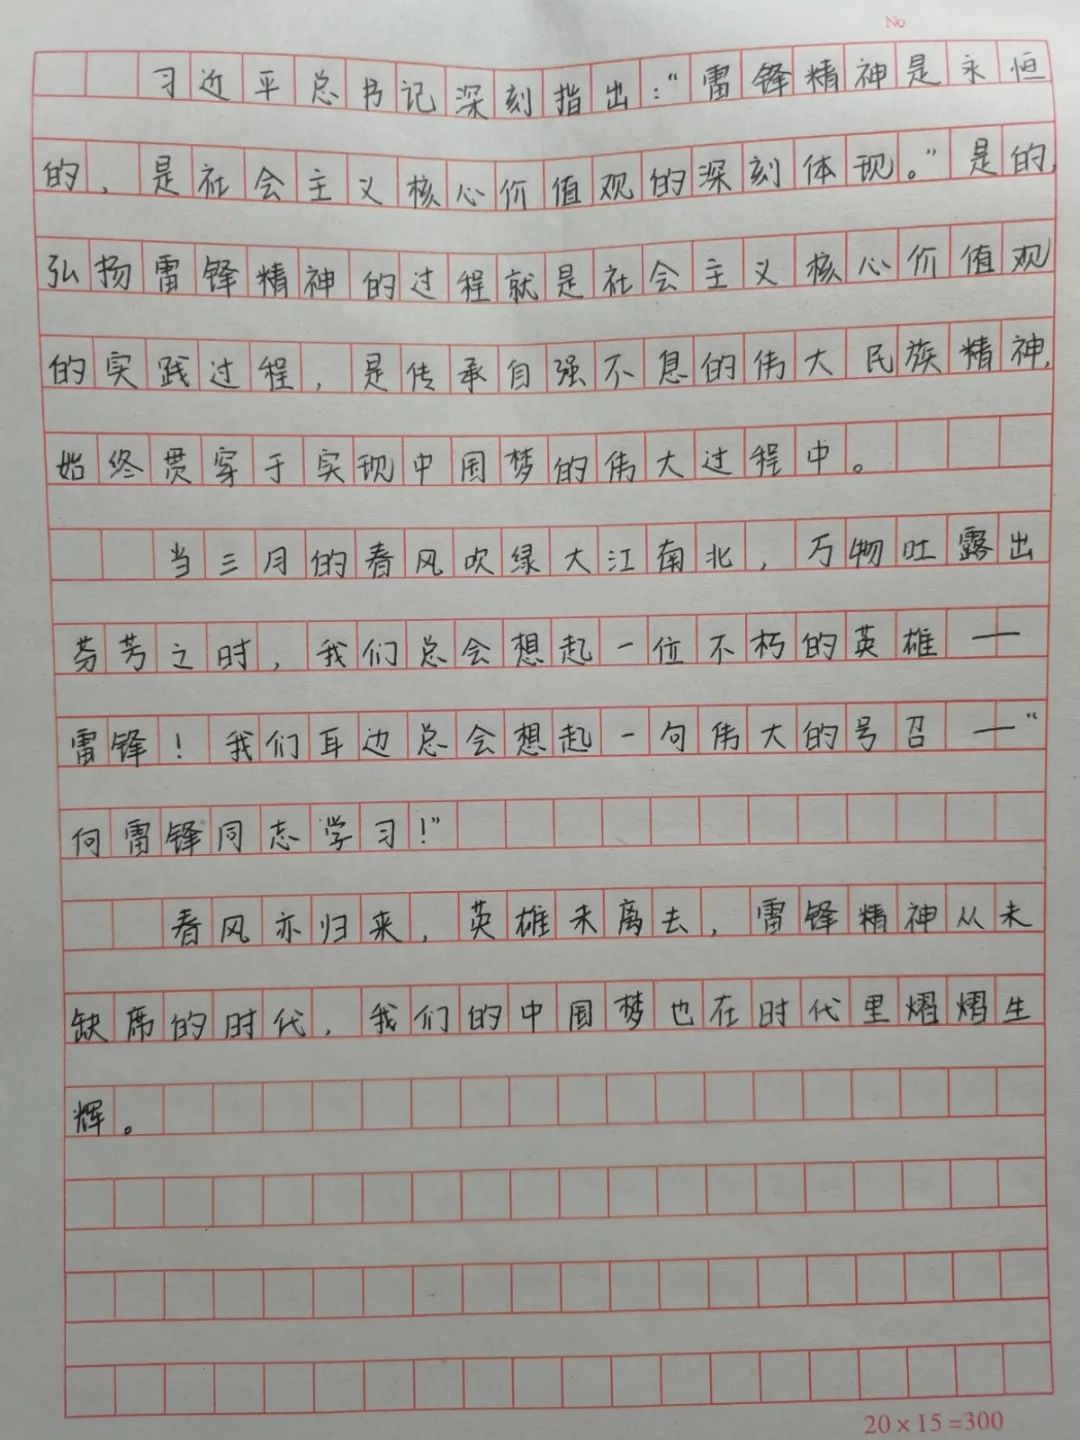 No
习近平总书记深刻指出："雷锋精神是永恒
的，是社会主义核心价值观的深刻体现。"是的，
弘扬雷锋精神的过程就是社会主义核心价值观
的实践过程，是传承自强不息的伟大民族精神，
始终贯穿于实现中国梦的伟大过程中。
当三月的春风吹绿大江南北，万物吐露出
芬芳之时，我们总会想起一位不朽的英雄——
雷锋！我们耳边总会想起一句伟大的号召——"
向雷锋同志学习！"
春风亦归来，英雄未离去，雷锋精神从未
缺席的时代，我们的中国梦也在时代里熠熠生
辉。
20×15=300